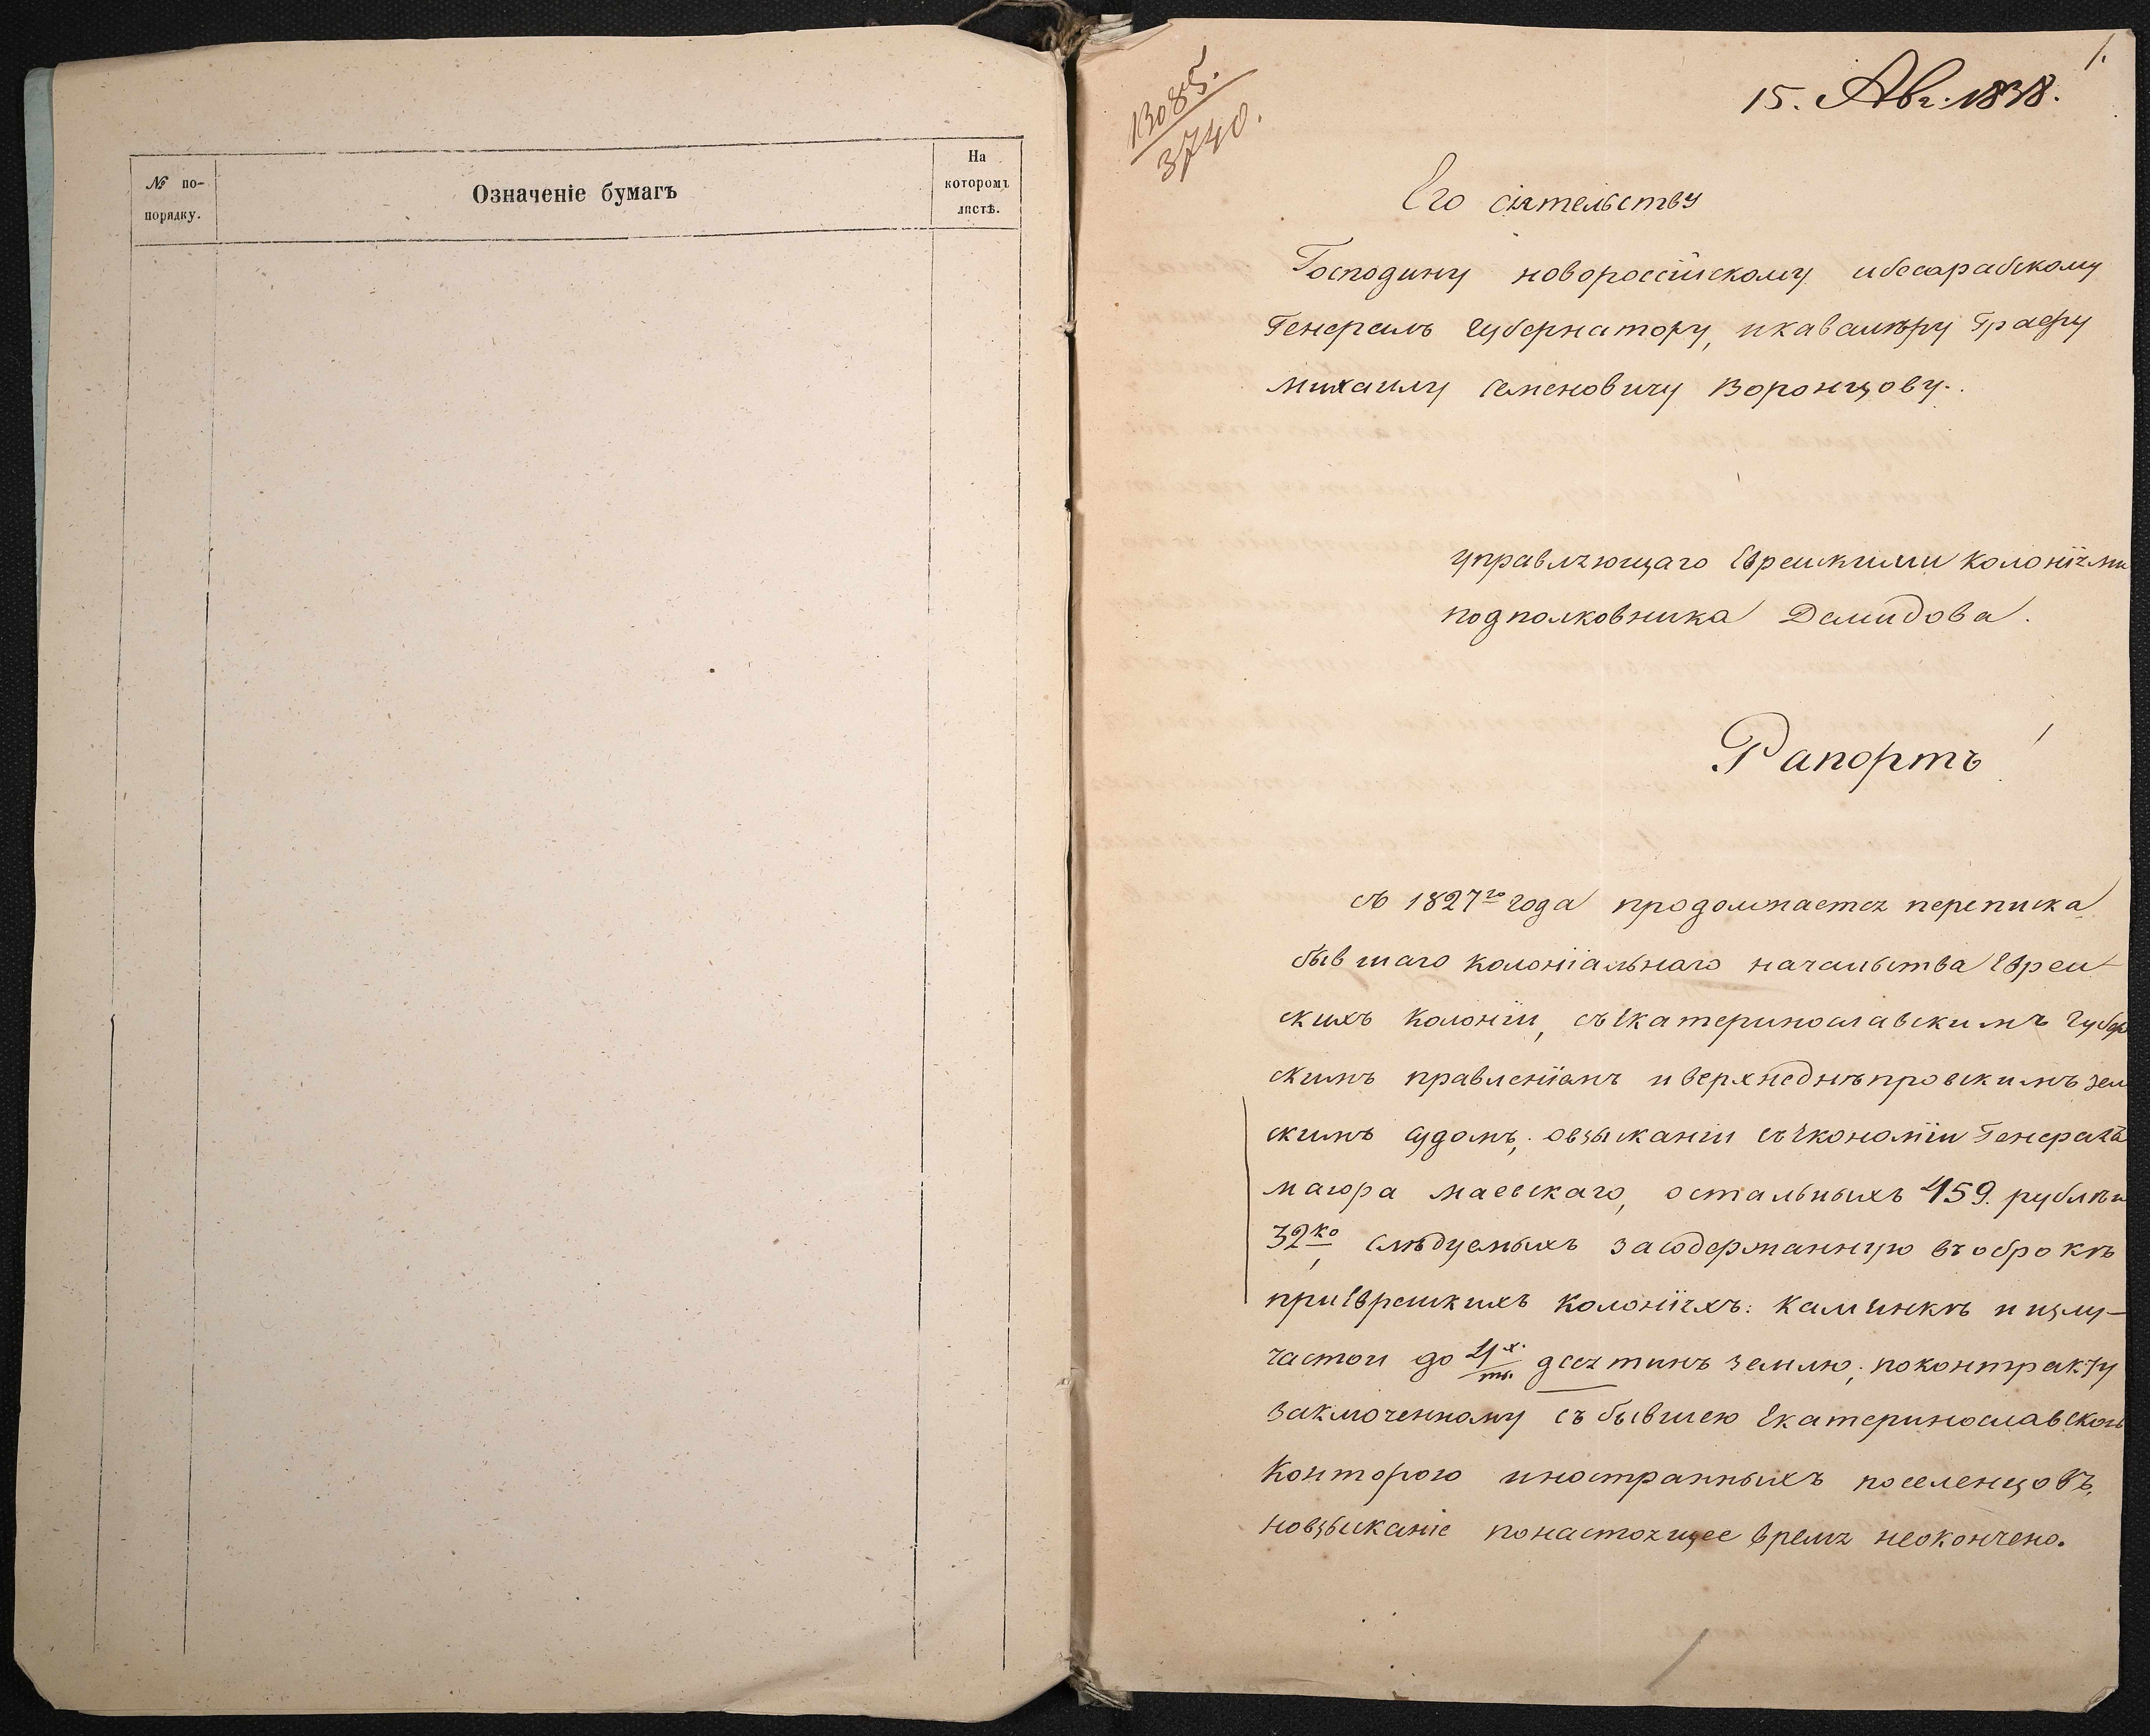 № по-
порядку.
Означеніе бумагъ
На
которомъ
листѣ.
1.
13085.
3740.
15. Авг. 1838.
Его сіятельству
Господину новороссійскому ибесарабскому
Генералъ Губернатору, икавалѣру Графу
михаилу семеновичу Воронцову.
управляющаго Еврейскими колоніями
подполковника Демидова.
Рапортъ
съ 1827го года продолжается переписка
бывшаго колоніальнаго начальства Еврей-
скихъ колоній, съЕкатеринославскимъ Губер
скимъ правленіемъ иверхнеднѣпровскимъ зем
скимъ судомъ, овзысканіи съЕкономіи Генералъ
маіора маевскаго, остальныхъ 459. рублѣй
32ко, слѣдуемыхъ засодержанную въоброкѣ
приЕврейскихъ колоніяхъ: каменкѣ и излу-
частой до 4х. ты. десятинъ землю, поконтракту
заключенному съ бывшею Екатеринославскою
Конторою иностранныхъ поселенцовъ,
новзысканіе понастоящее время неокончено.